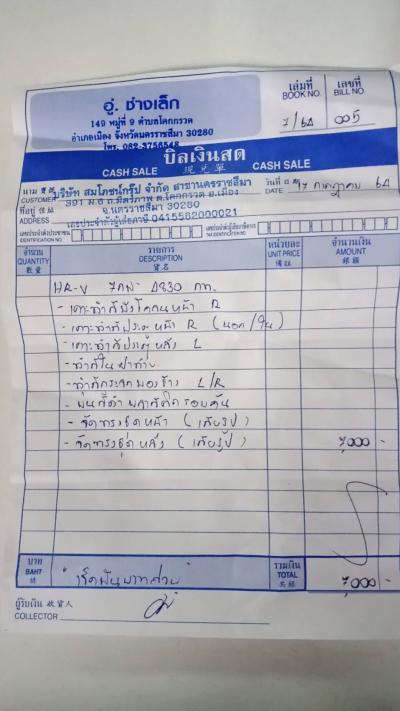 อู่. ช่างเล็ก
149 หมู่ที่ 9 ตำบลโคกกรวด
อำเภอเมือง จังหวัดนครราชสีมา 30280
โทร. 082-3756548
เล่มที่ เลขที่
BOOK NO. BILL NO.
7/64 005
บิลเงินสด
CASH SALE 現兌單 CASH SALE
นาม
CUSTOMER บริษัท สมโภชน์กรุ๊ป จำกัด สาขานครราชสีมา
วันที่
DATE 17 กรกฎาคม 64
ที่อยู่
ADDRESS 391 ม.6 ถ.มิตรภาพ ต.โคกกรวด อ.เมือง
จ.นครราชสีมา 30280
เลขประจำตัวผู้เสียภาษี 0415562000021
เลขประจำตัวประชาชน
IDENTIFICATION NO.
เลขประจำตัวผู้เสียภาษีอากร
TAX IDENTIFICATION NO.
จำนวน รายการ หน่วยละ จำนวนเงิน
QUANTITY DESCRIPTION UNIT PRICE AMOUNT
數量 貨名 銀額
HR-V 7กพ- 4830 กท.
- เคาะทำสีบังโคลนหน้า R
- เคาะทำสีประตูหน้า R (นอก/ใน)
- เคาะทำสีประตูหลัง L
- ทำสีกระจกมองข้าง L/R
- พ่นสีดำ พลาสติกรอบคัน
- จัดทรงชุดหน้า (เสียรูป)
- จัดทรงชุดหลัง (เสียรูป) 7,000 -
บาท
BAHT
"เจ็ดพันบาทถ้วน"
รวมเงิน
TOTAL
7,000 -
ผู้รับเงิน 收貨人
COLLECTOR